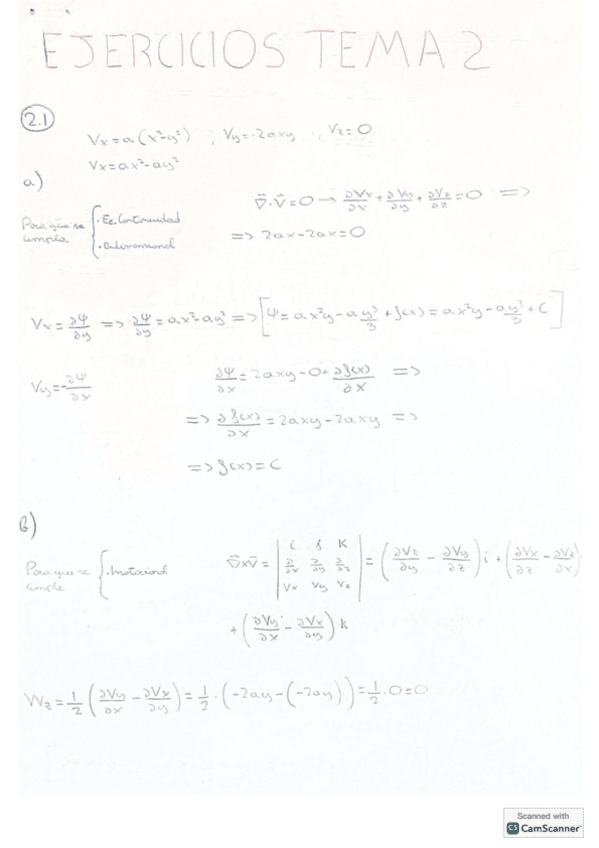 EJERCICIOS TEMA 2
2.1
Vx = a(x²-y²) , Vy = -2axy , Vz = 0
Vx = ax²-ay²
a)
∇·V = 0 → ∂Vx/∂x + ∂Vy/∂y + ∂Vz/∂z = 0 =>
Para que se cumpla { · Ec. Continuidad
=> 2ax - 2ax = 0
Vx = ∂Ψ/∂y => ∂Ψ/∂y = ax²-ay² => [Ψ = ax²y - a y³/3 + f(x) = ax²y - ay³/3 + C]
Vy = -∂Ψ/∂x
∂Ψ/∂x = 2axy - 0 + ∂f(x)/∂x =>
=> ∂f(x)/∂x = 2axy - 2axy =>
=> f(x) = C
b)
Para que se cumple { · Irrotacional
∇x∇ = | i j K ; ∂/∂x ∂/∂y ∂/∂z ; Vx Vy Vz | = (∂Vz/∂y - ∂Vy/∂z) i + (∂Vx/∂z - ∂Vz/∂x)
+ (∂Vy/∂x - ∂Vx/∂y) K
Wz = 1/2 (∂Vy/∂x - ∂Vx/∂y) = 1/2 · (-2ay - (-2ay)) = 1/2 · 0 = 0
Scanned with
CS CamScanner